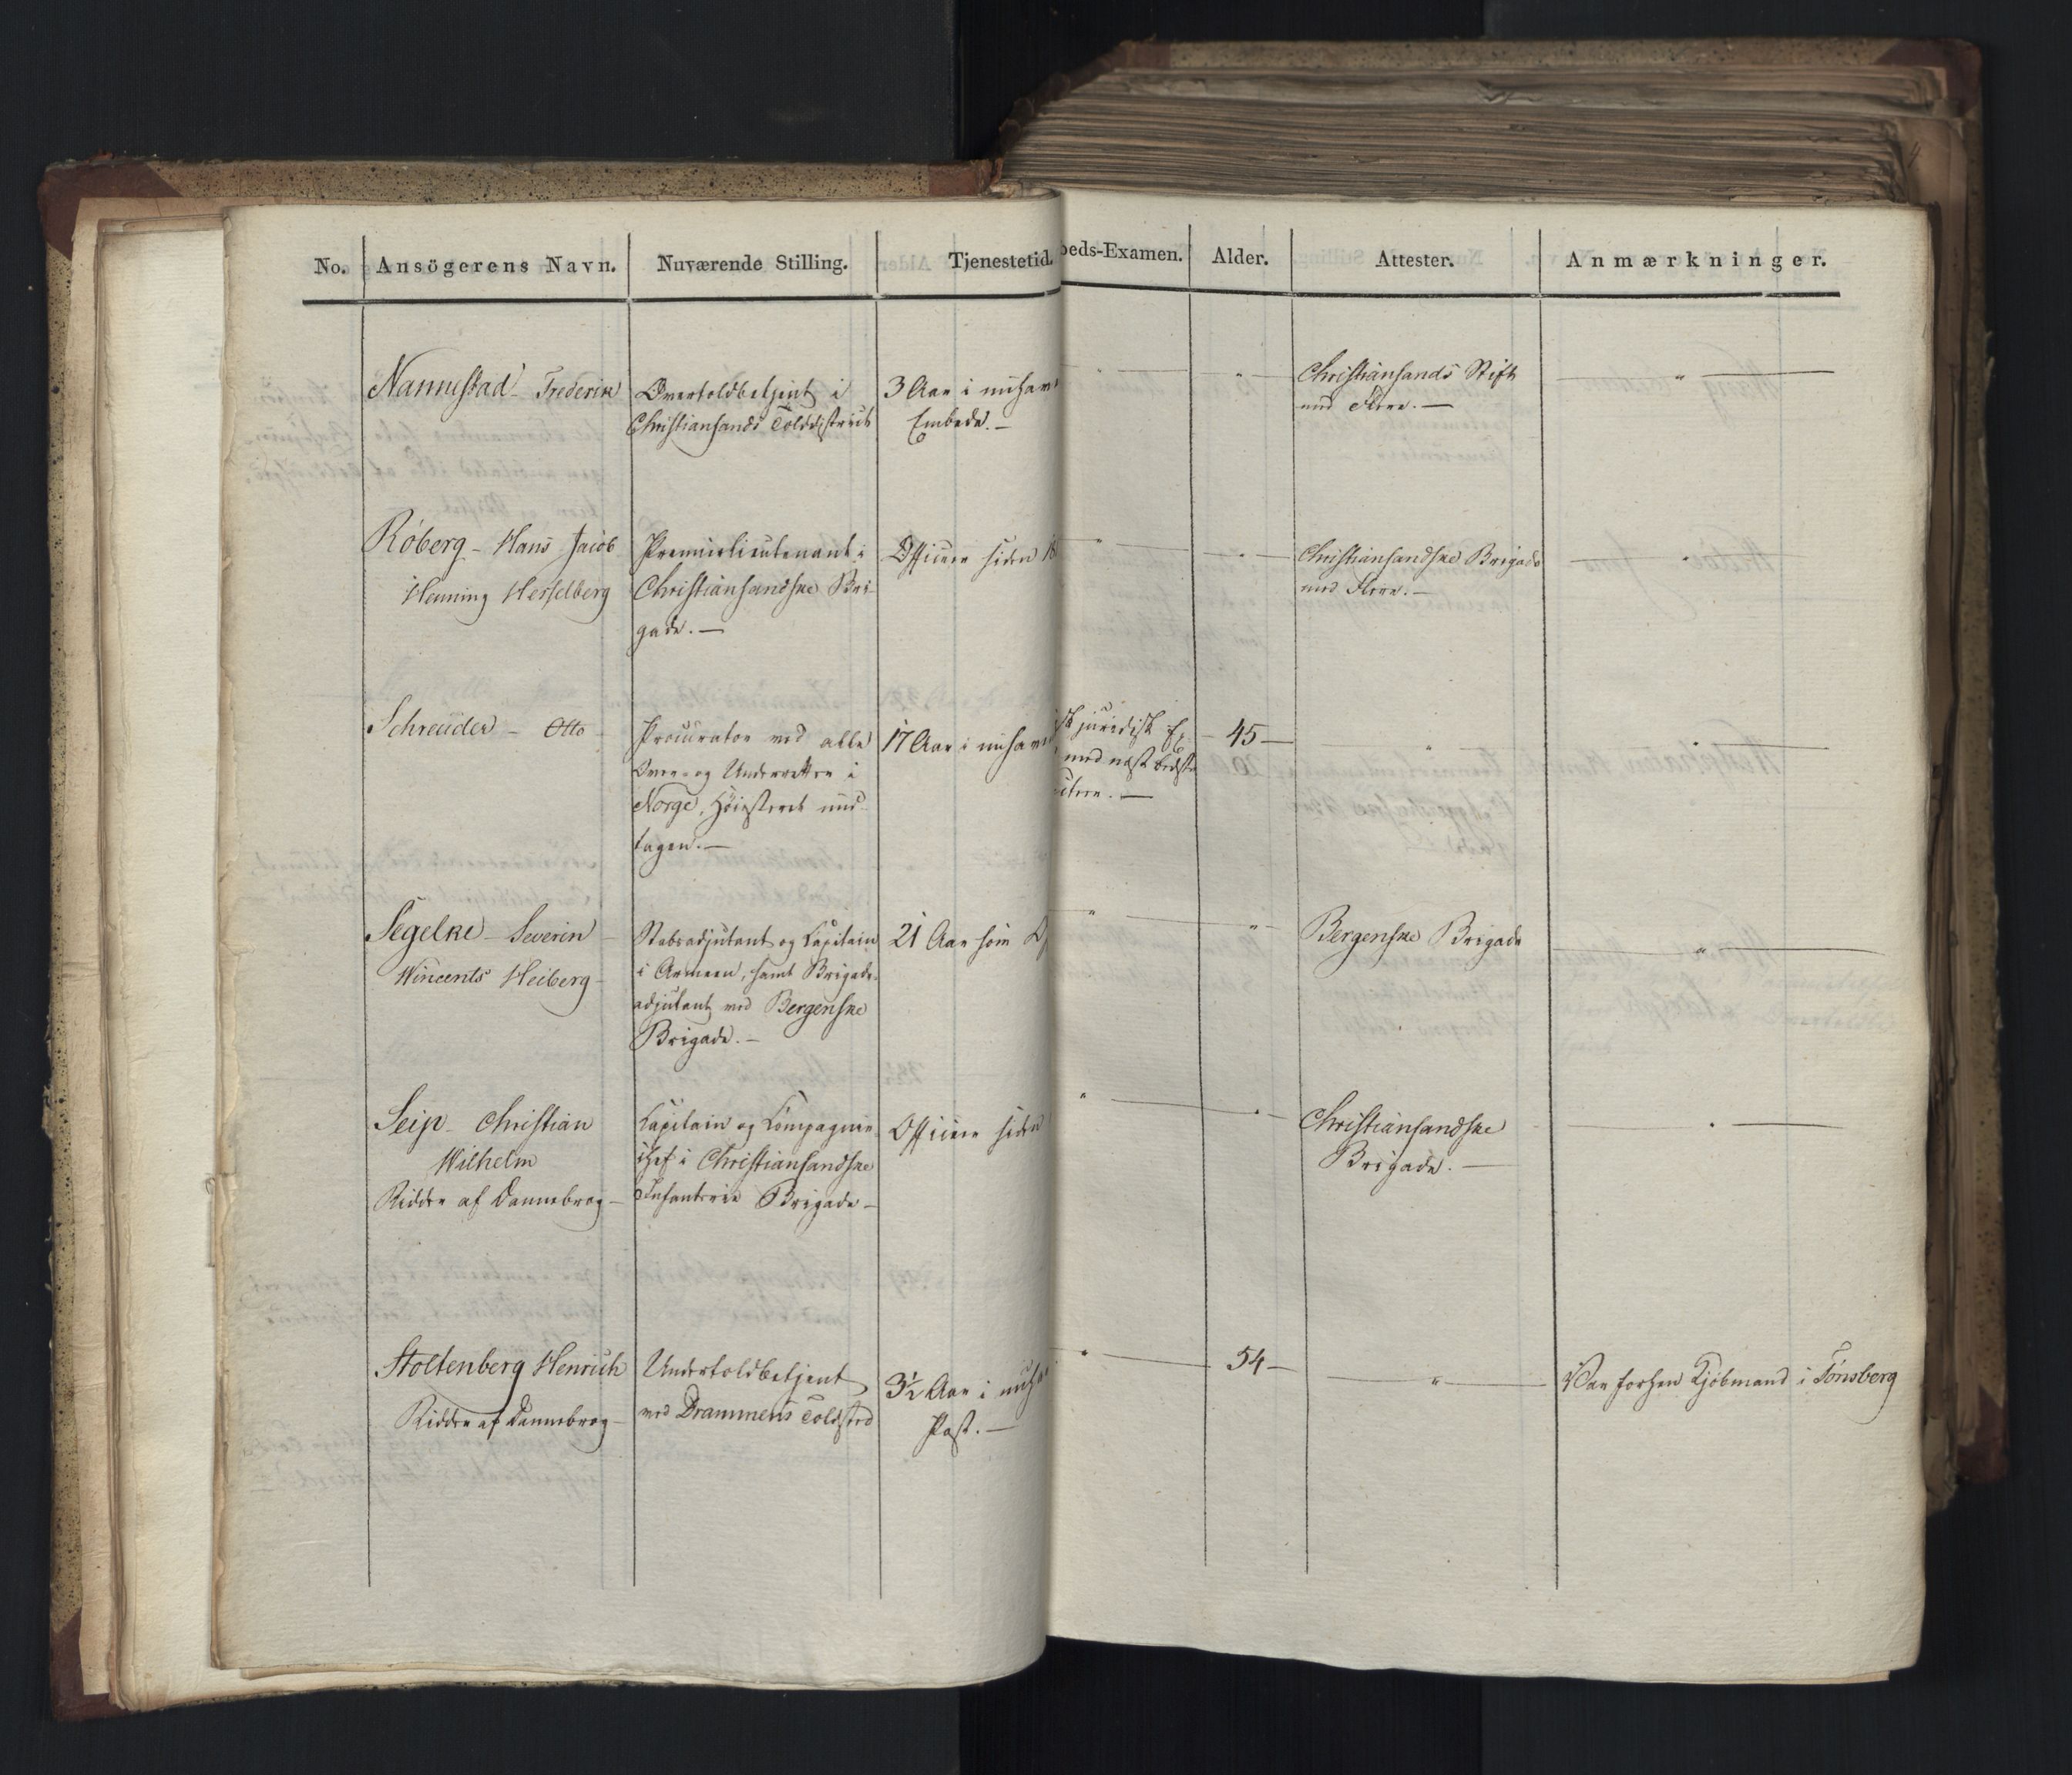 No. Ansögerens Navn. Nuværende Stilling. Tjenestetid.
beds-Examen. Alder. Attester. Anmærkninger.
Nannestad - Frederik
Overtoldbetjent i
Christiansands Tolddistrict
3 Aar i nuhav
Embede. -
" "
Christiansands Stift
med Flere. -
"
Röberg - Hans Jacob
Henning Hesselberg
Premierlieutenant i
Christiansandske Bri-
gade. -
Officeer siden 18
" "
Christiansandske Brigade
med Flere. -
"
Schreuder - Otto
Procurator ved alle
Over- og Underretter i
Norge, Höiesteret und-
tagen. -
17 Aar i nuhav
sk juridisk Ex
med næst bedste
- 45 -
" "
Segelke - Severin
Wincents Heiberg -
Stabsadjutant og Capitain
i Armeen, samt Brigade-
adjutant ved Bergenske
Brigade. -
21 Aar som Of
" "
Bergenske Brigade
"
Seip - Christian
Wilhelm
Ridder af Dannebrog -
Capitain og Compagnie-
chef i Christiansandske
Infanterie Brigade -
Officeer siden
" "
Christiansandske
Brigade. -
"
Stoltenberg Henrich
Ridder af Dannebrog -
Undertoldbetjent
ved Drammens Toldsted
3½ Aar i nuha
Post. -
"
54 -
"
Var forhen Kjöbmand i Tönsberg